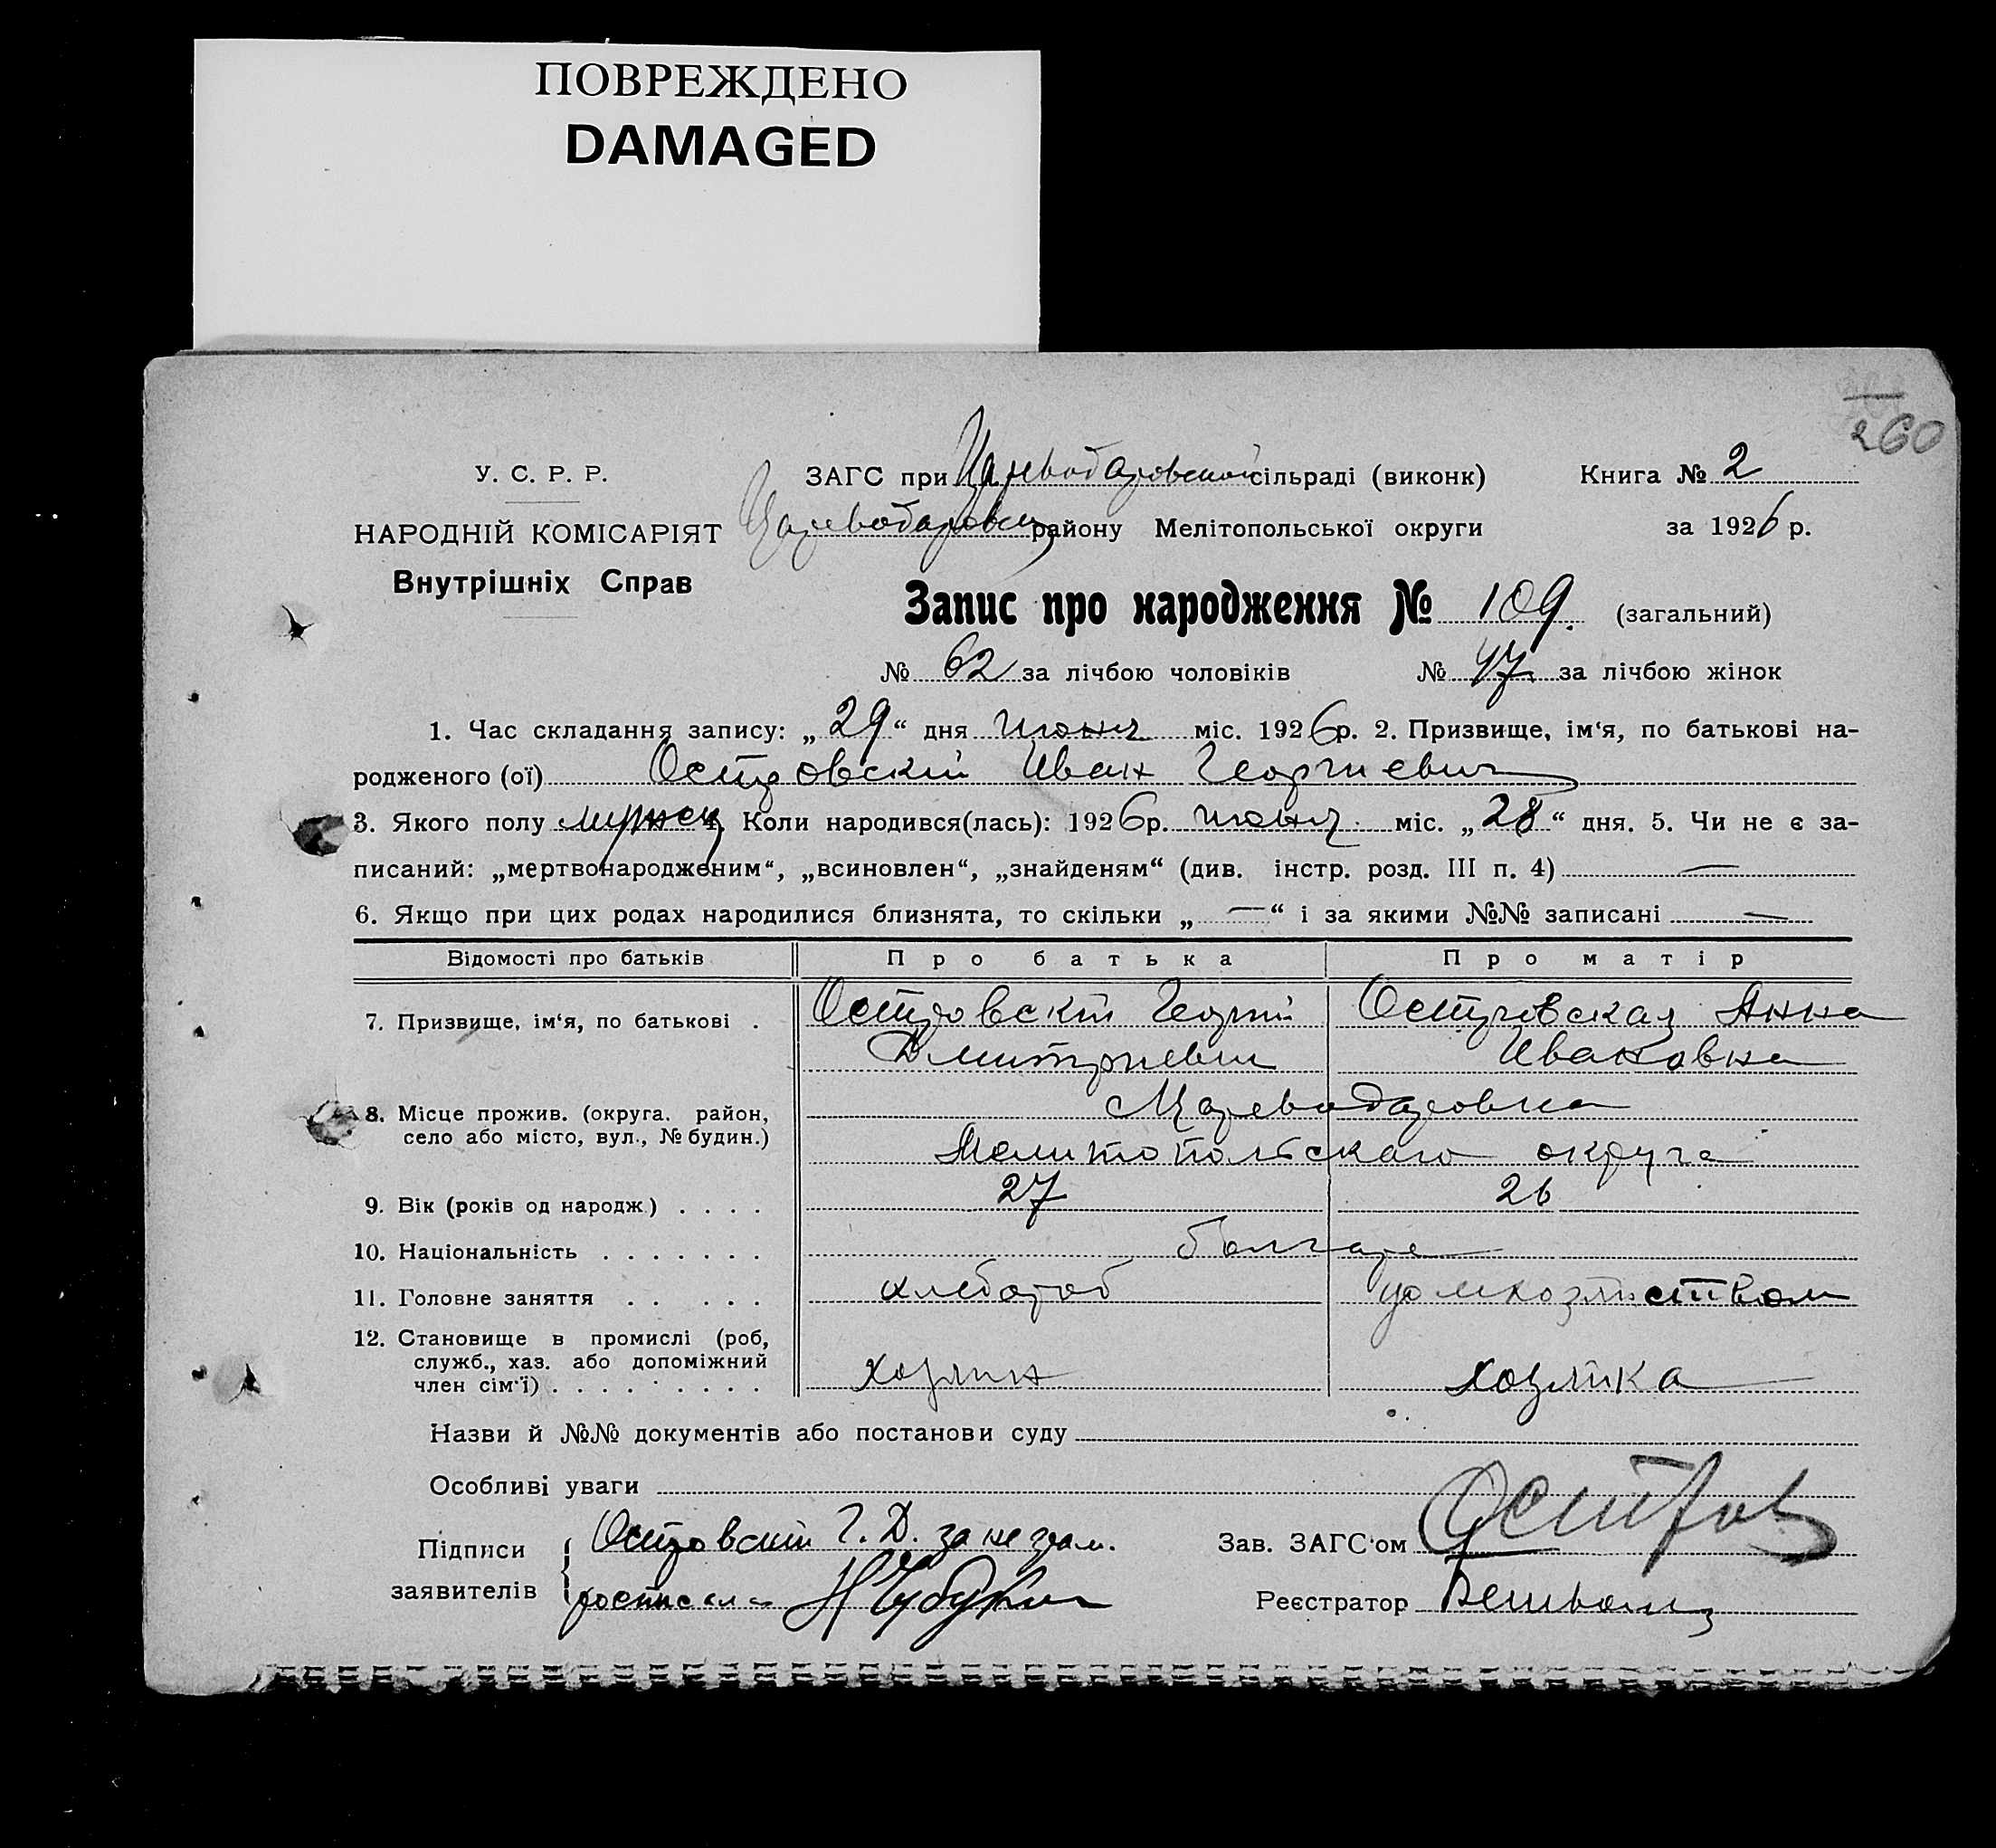 ПОВРЕЖДЕНО
DAMAGED
260
У. С. Р. Р.
ЗАГС при Цареводаровской сільраді (виконк)
Книга № 2
НАРОДНІЙ КОМІСАРІЯТ
Цареводаровск району Мелітопольської округи
за 1926 р.
Внутрішніх Справ
Запис про народження № 109. (загальний)
№ 62 за лічбою чоловіків № 47 за лічбою жінок
1. Час складання запису: „29“ дня июня міс. 1926р. 2. Призвище, ім‘я, по батькові на-
родженого (ої) Островскій Иван Георгиевич
3. Якого полу мужск 4. Коли народився(лась): 1926р. июня міс. „28“ дня. 5. Чи не є за-
писаний: „мертвонародженим“, „всиновлен“, „знайденям“ (див. інстр. розд. III п. 4) —
6. Якщо при цих родах народилися близнята, то скільки „—“ і за якими №№ записані —
Відомості про батьків Про батька Про матір
7. Призвище, ім‘я, по батькові . Островскій Георгій Островская Анна
Дмитриевич Ивановна
8. Місце прожив. (округа, район, Цареводаровка
село або місто, вул., № будин.)
Мелитопольскаго округа
9. Вік (років од народж.) . . . . 27 26
10. Національність . . . . . . . болгаре
11. Головне заняття . . . . . хлебороб домхозяйством
12. Становище в промислі (роб,
служб., хаз. або допоміжний
член сім‘ї) . . . . . . . . . хозяин хозяйка
Назви й №№ документів або постанови суду
Особливі уваги
Підписи заявителів Островскій Г. Д. за не грам.
росписалa
Зав. ЗАГС‘ом Остров
Реєстратор